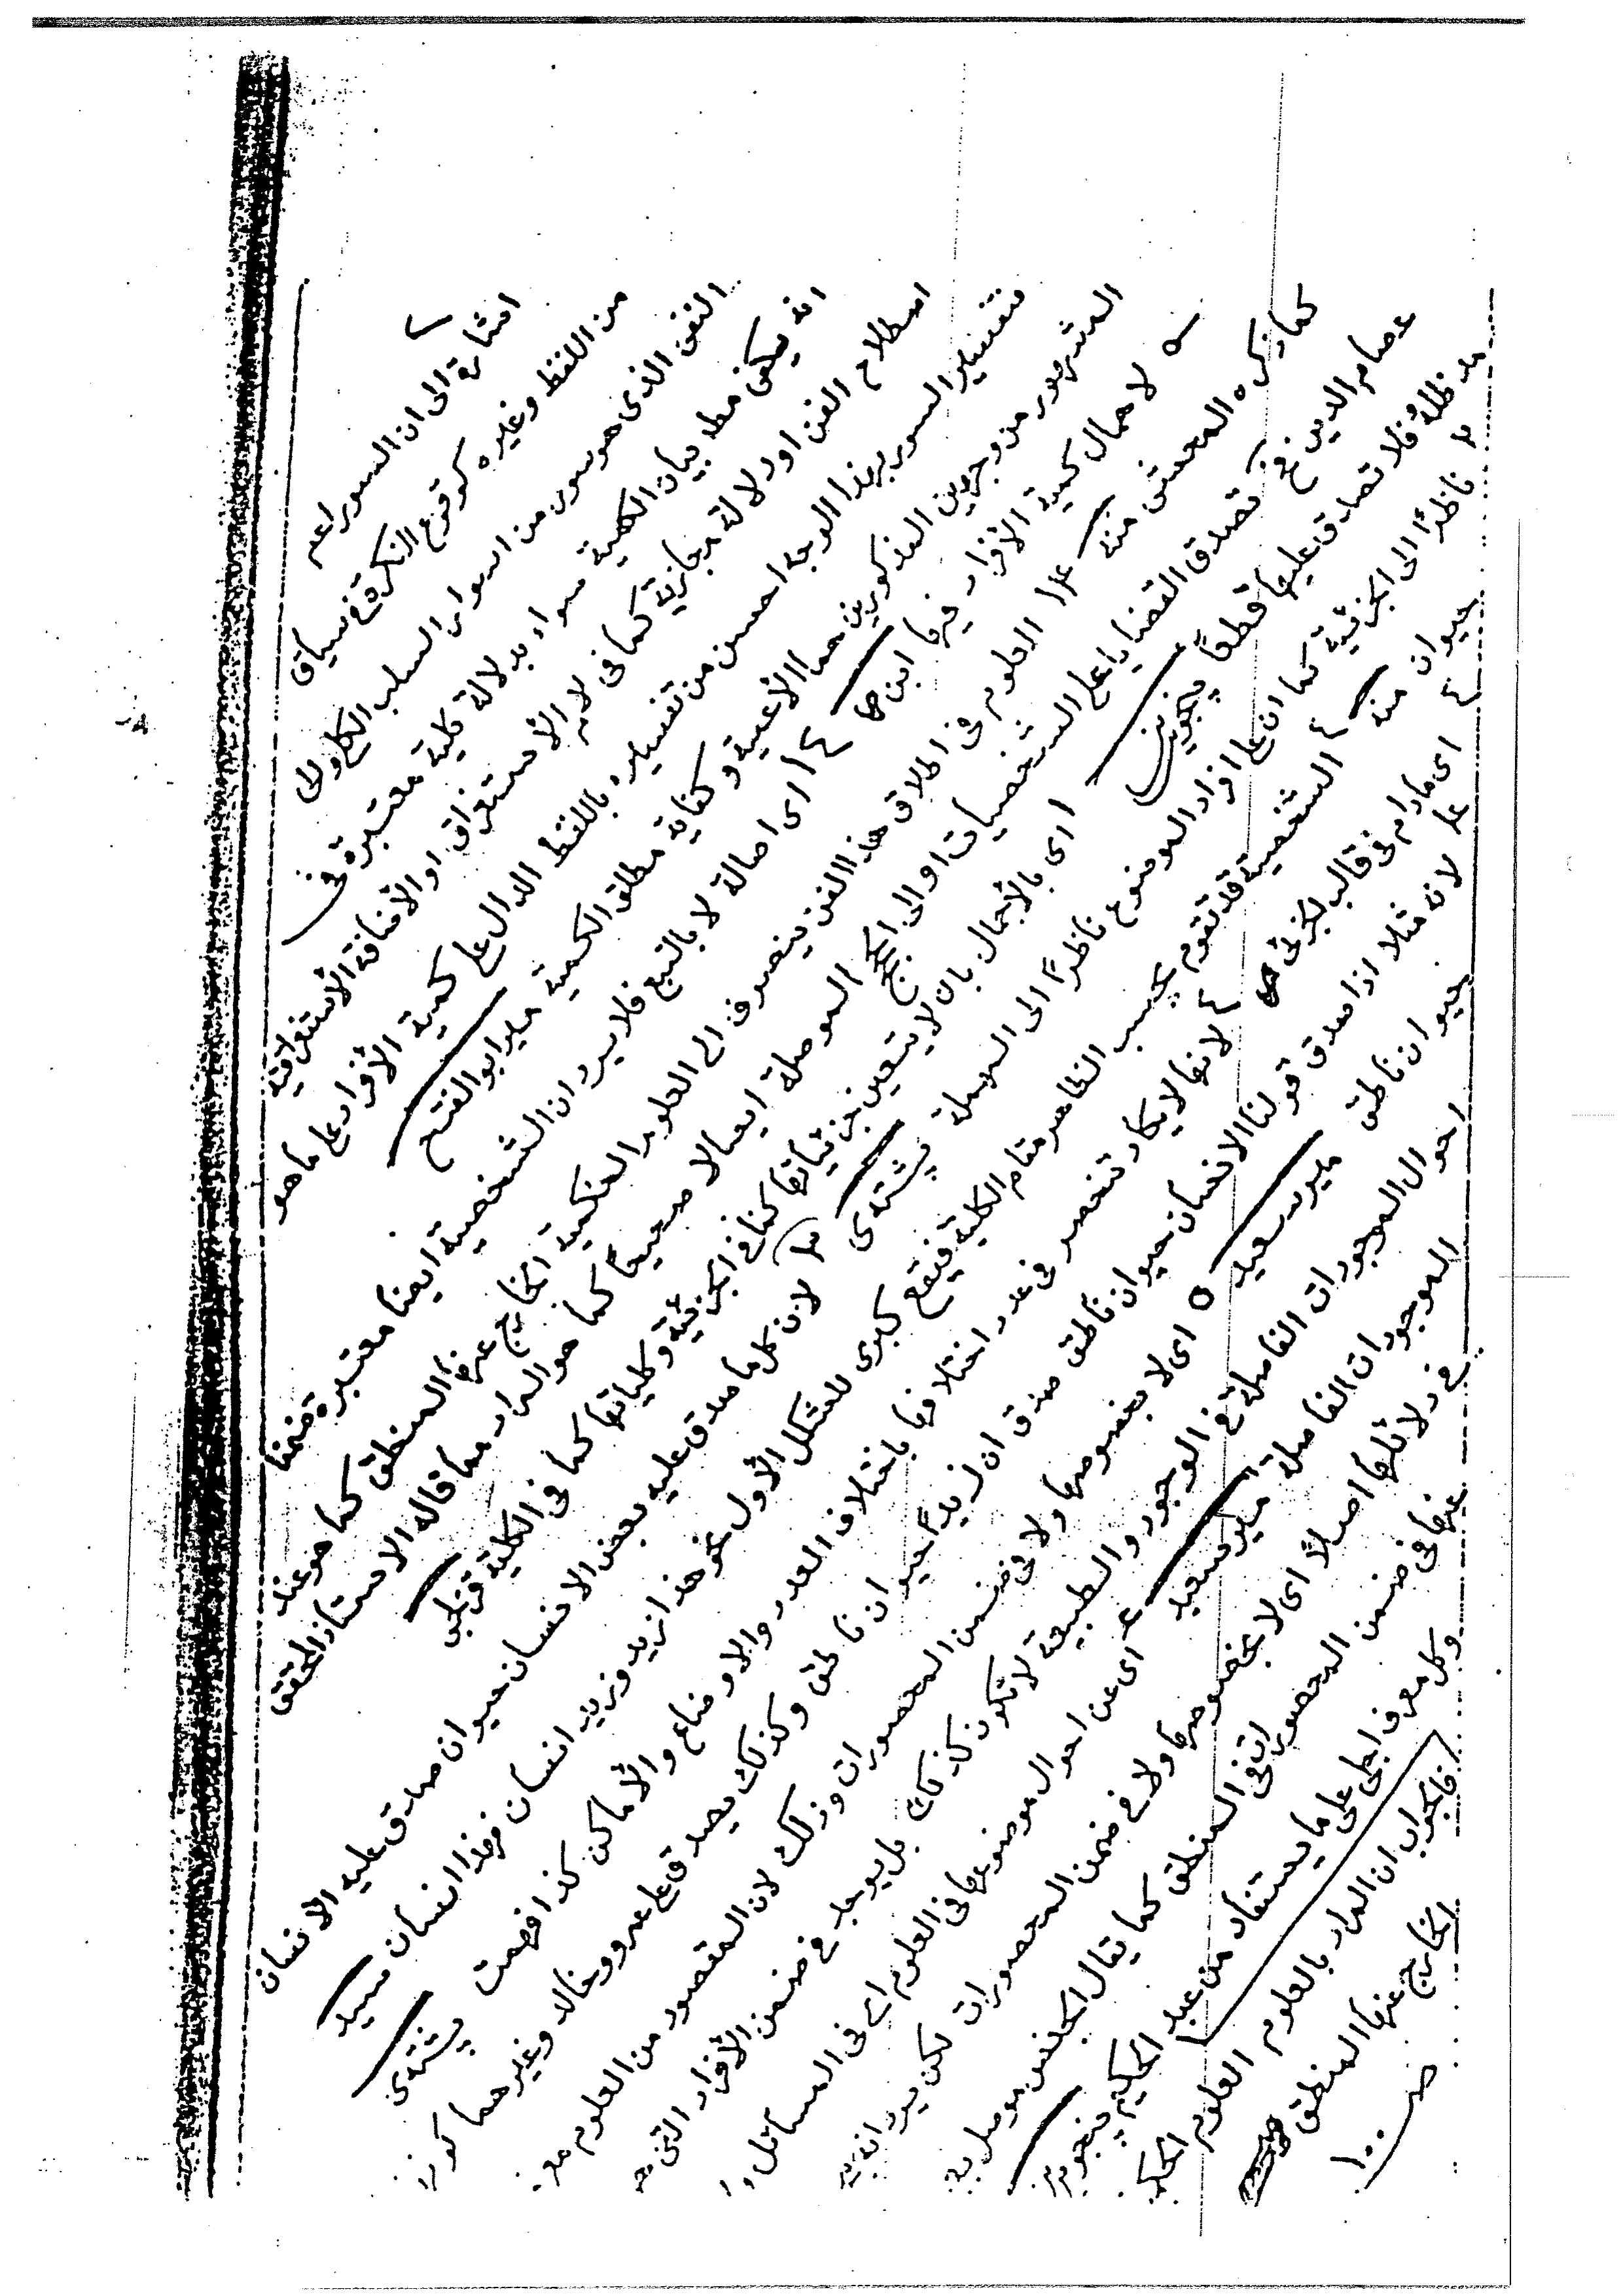 اشارة الى ان السور اعم
من اللفظ وغيره كوقوع النكرة فى سياق
النفى الذى هو سور من اسوار السلب الكلى والى
انه يكفى مط بيان الكمية سواء بدلالة كلية معتبرة فى
اصطلاح الفن او دلالة مجازية كما فى لام الأستغراق او الأضافة الأستغراقية
تفسير السور بهذا الوجه احسن من تفسيره باللفظ الدال على كمية الأفراد على ما هو
المشهور من وجهين المذكورين هما الأعمية وكفاية مطلق الكمية مير ابو الفتح
لاهمال كمية الأفراد فيها ابن حا اى اصالة لا بالتبع فلا يرد ان الشخصية ايضا معتبرة ضمنا
كما ذكره المحشى منه العلوم فى اطلاق هذا الفن ينصرف الى العلوم الحكمية الخارج عنها المنطق كما هو عند
عصام الدين فح تصدق القضايا على الشخصيات او الى الحجج الموصلة ايصالا صحيحًا كما هو المراد مما قاله الاستاذ المحقق
مد ظله فلا تصدق عليها قطعًا پنجوينى اى بالأجمال بان لا يتعين جزئياتها كما فى الجزئية وكلياتها كما فى الكلية قزلجى
ناظرًا الى الجزئية كما ان على افراد الموضوع ناظرًا الى المهملة بيتوشى لان كل ما صدق عليه بعض الانسان حيوان صادق عليه الأنسان
حيوان منه الشخصية قد تقوم بحسب الظاهر مقام الكلية فيقع كبرى للشكل الأول نحو هذا زيد وزيد انسان فهذا انسان سيد
اى مادام فى قالب الجزئى لانها لا يكاد تنحصر فى عدد اختلافها باختلاف العدد والاوضاع والأماكن كذا فهمت بيتوشى
لانه مثلا اذا صدق قولنا الانسان حيوان ناطق صدق ان زيدًا حيوان ناطق وكذلك يصدق على عمرو وخالد وغيرهما
حيوان ناطق مير سعيد ٥ اى لا بخصوصها ولا فى ضمن المحصورات وذلك لان المقصود من العلوم
احوال الموجودات الفاصلة فى الوجود والطبيعة لا تكون كذلك بل يوجد فى ضمن الأفراد التى
الموجودات الفاصلة مير سعيد اى عن احوال موضوعها فى العلوم اى فى المسائل
فى دلائلها اصلًا اى لا بخصوصها ولا فى ضمن المحصورات لكن يرد انه
عنها فى ضمن المحصورات فى المنطق كما يقال الجنس موصل
وكل معرف اجلى على ما يستفاد من عبد الحكيم پنجوينى
فالجواب ان المراد بالعلوم العلوم
الخارج عنها المنطق
صـ ١٠٠